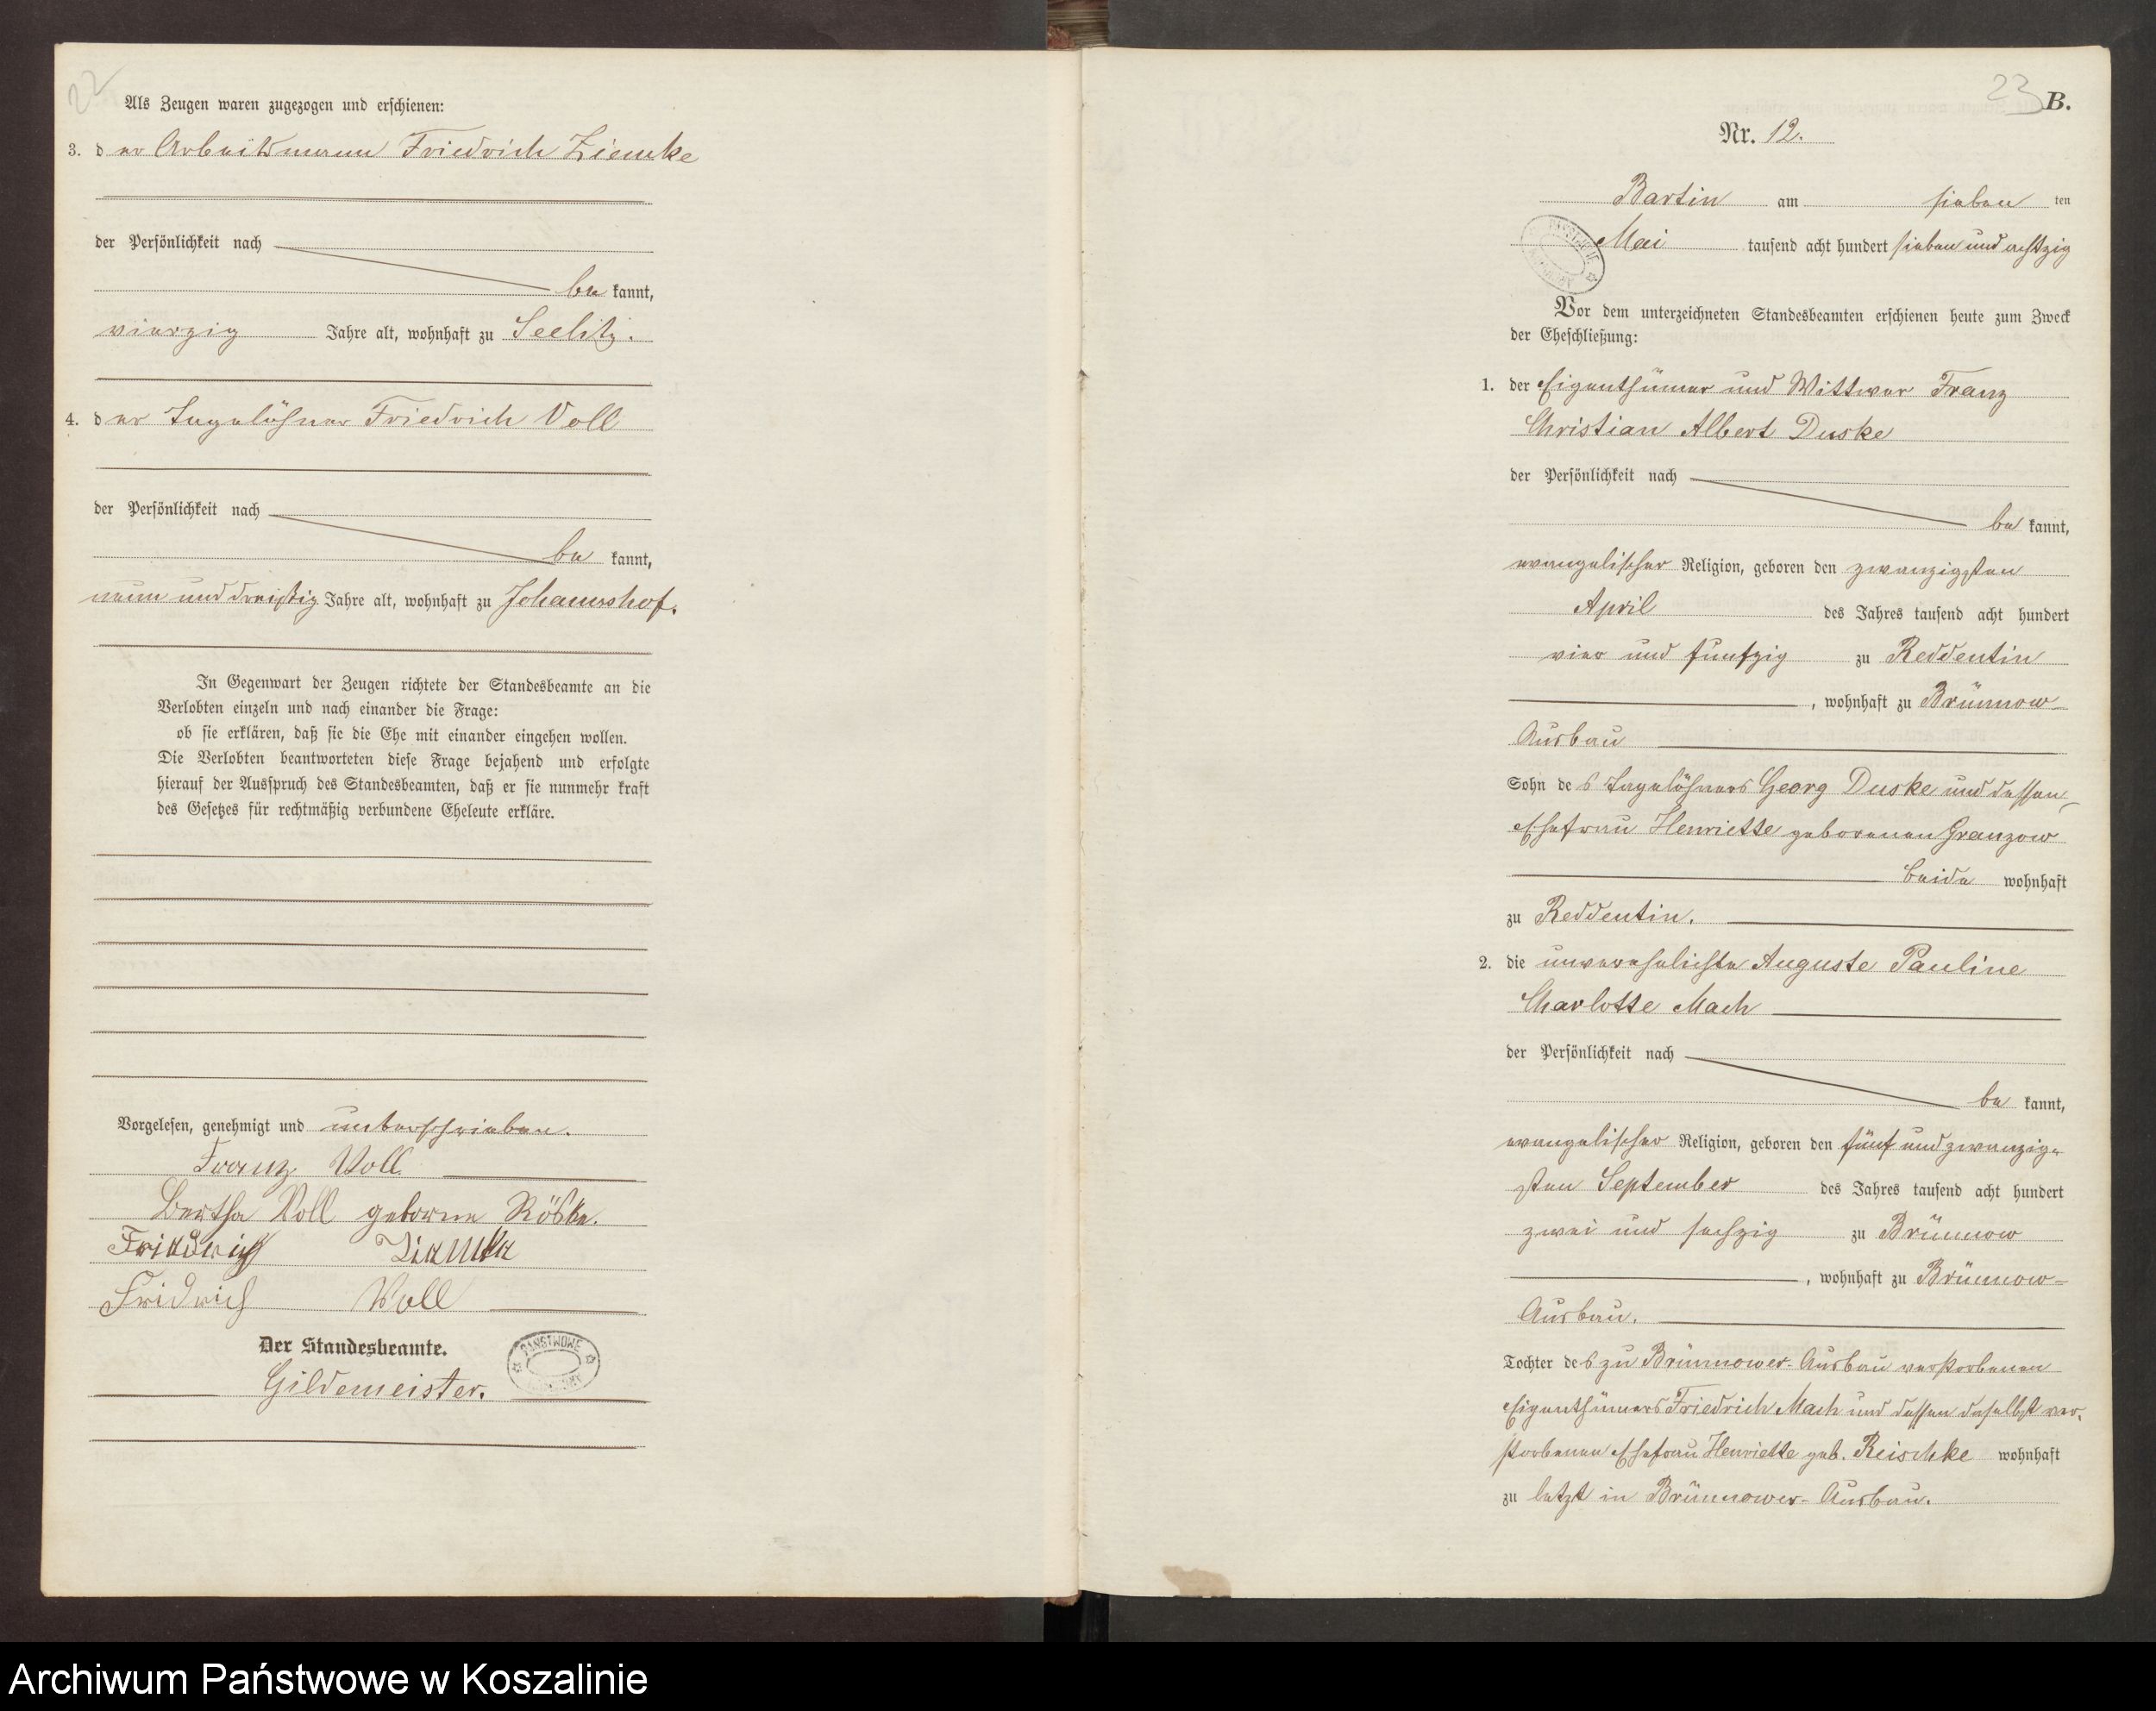 22
Als Zeugen waren zugezogen und erschienen:
3. der Arbeitsmann Friedrich Ziemke
der Persönlichkeit nach
bekannt,
vierzig Jahre alt, wohnhaft zu Seelitz.
4. der Tagelöhner Friedrich Voll
der Persönlichkeit nach
bekannt,
neun und dreißig Jahre alt, wohnhaft zu Johannshof.
In Gegenwart der Zeugen richtete der Standesbeamte an die
Verlobten einzeln und nach einander die Frage:
ob sie erklären, daß sie die Ehe mit einander eingehen wollen.
Die Verlobten beantworteten diese Frage bejahend und erfolgte
hierauf der Ausspruch des Standesbeamten, daß er sie nunmehr kraft
des Gesetzes für rechtmäßig verbundene Eheleute erkläre.
Vorgelesen, genehmigt und unterschrieben.
Franz Voll
Bertha Voll geborne Röske.
Friedrich Ziemke
Fridrich Voll
Der Standesbeamte.
Gildemeister.
23 B.
Nr. 12.
Bartin am siebenten
Mai tausend acht hundert sieben und achtzig
Vor dem unterzeichneten Standesbeamten erschienen heute zum Zweck
der Eheschließung:
1. der Eigenthümer und Wittwer Franz
Christian Albert Duske
der Persönlichkeit nach
bekannt,
evangelischer Religion, geboren den zwanzigsten
April des Jahres tausend acht hundert
vier und fünfzig zu Reddentin
, wohnhaft zu Brünnow-
Ausbau
Sohn des Tagelöhners Georg Duske und dessen
Ehefrau Henriette geborenen Granzow
beide wohnhaft
zu Reddentin.
2. die unverehelichte Auguste Pauline
Charlotte Mach
der Persönlichkeit nach
bekannt,
evangelischer Religion, geboren den fünf und zwanzig-
sten September des Jahres tausend acht hundert
zwei und sechzig zu Brünnow
, wohnhaft zu Brünnow-
Ausbau.
Tochter des zu Brünnower-Ausbau verstorbenen
Eigenthümers Friedrich Mach und dessen daselbst ver-
storbenen Ehefrau Henriette geb. Reischke wohnhaft
zu letzt in Brünnower-Ausbau.
Archiwum Państwowe w Koszalinie